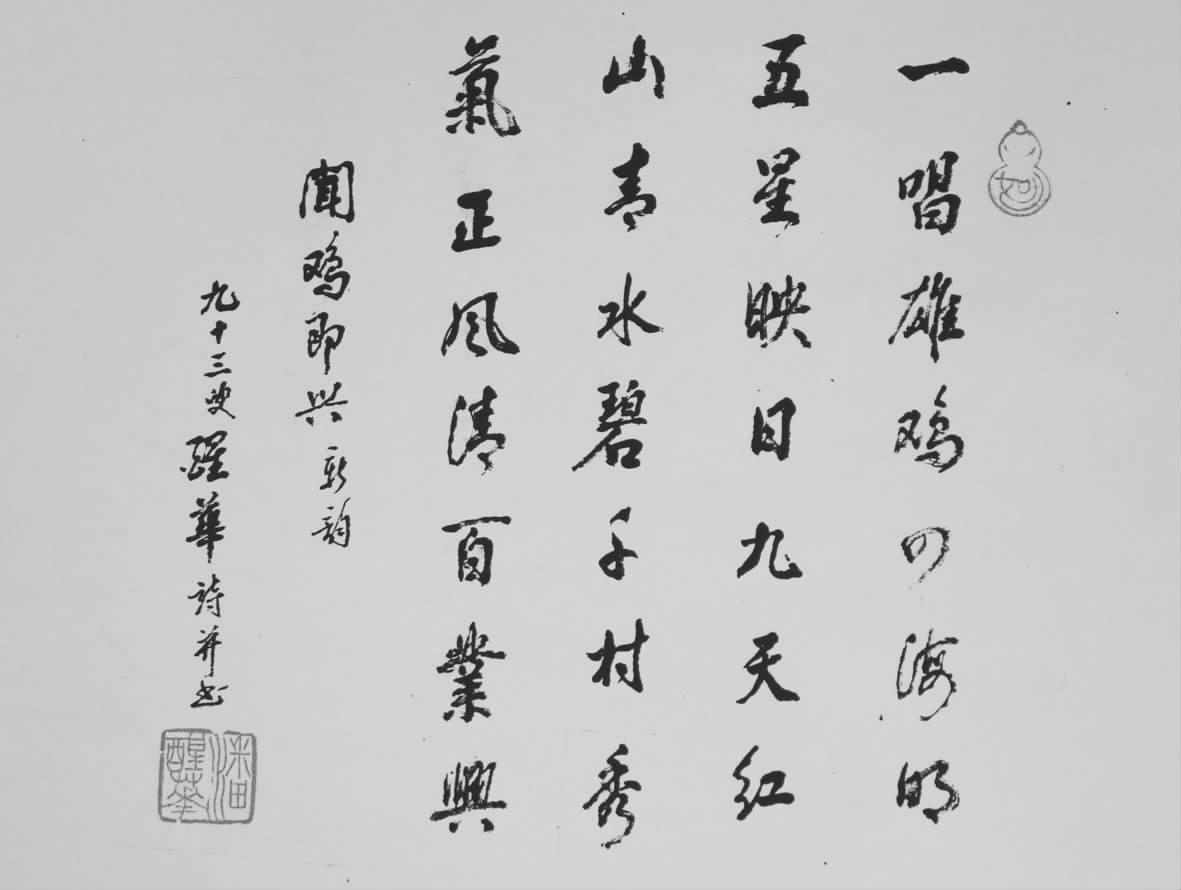 一唱雄鸡四海明
五星映日九天红
山青水碧千村秀
氣正风清百業興
聞鸡即兴 新韵
九十三叟醒華詩并书
如
潘醒華